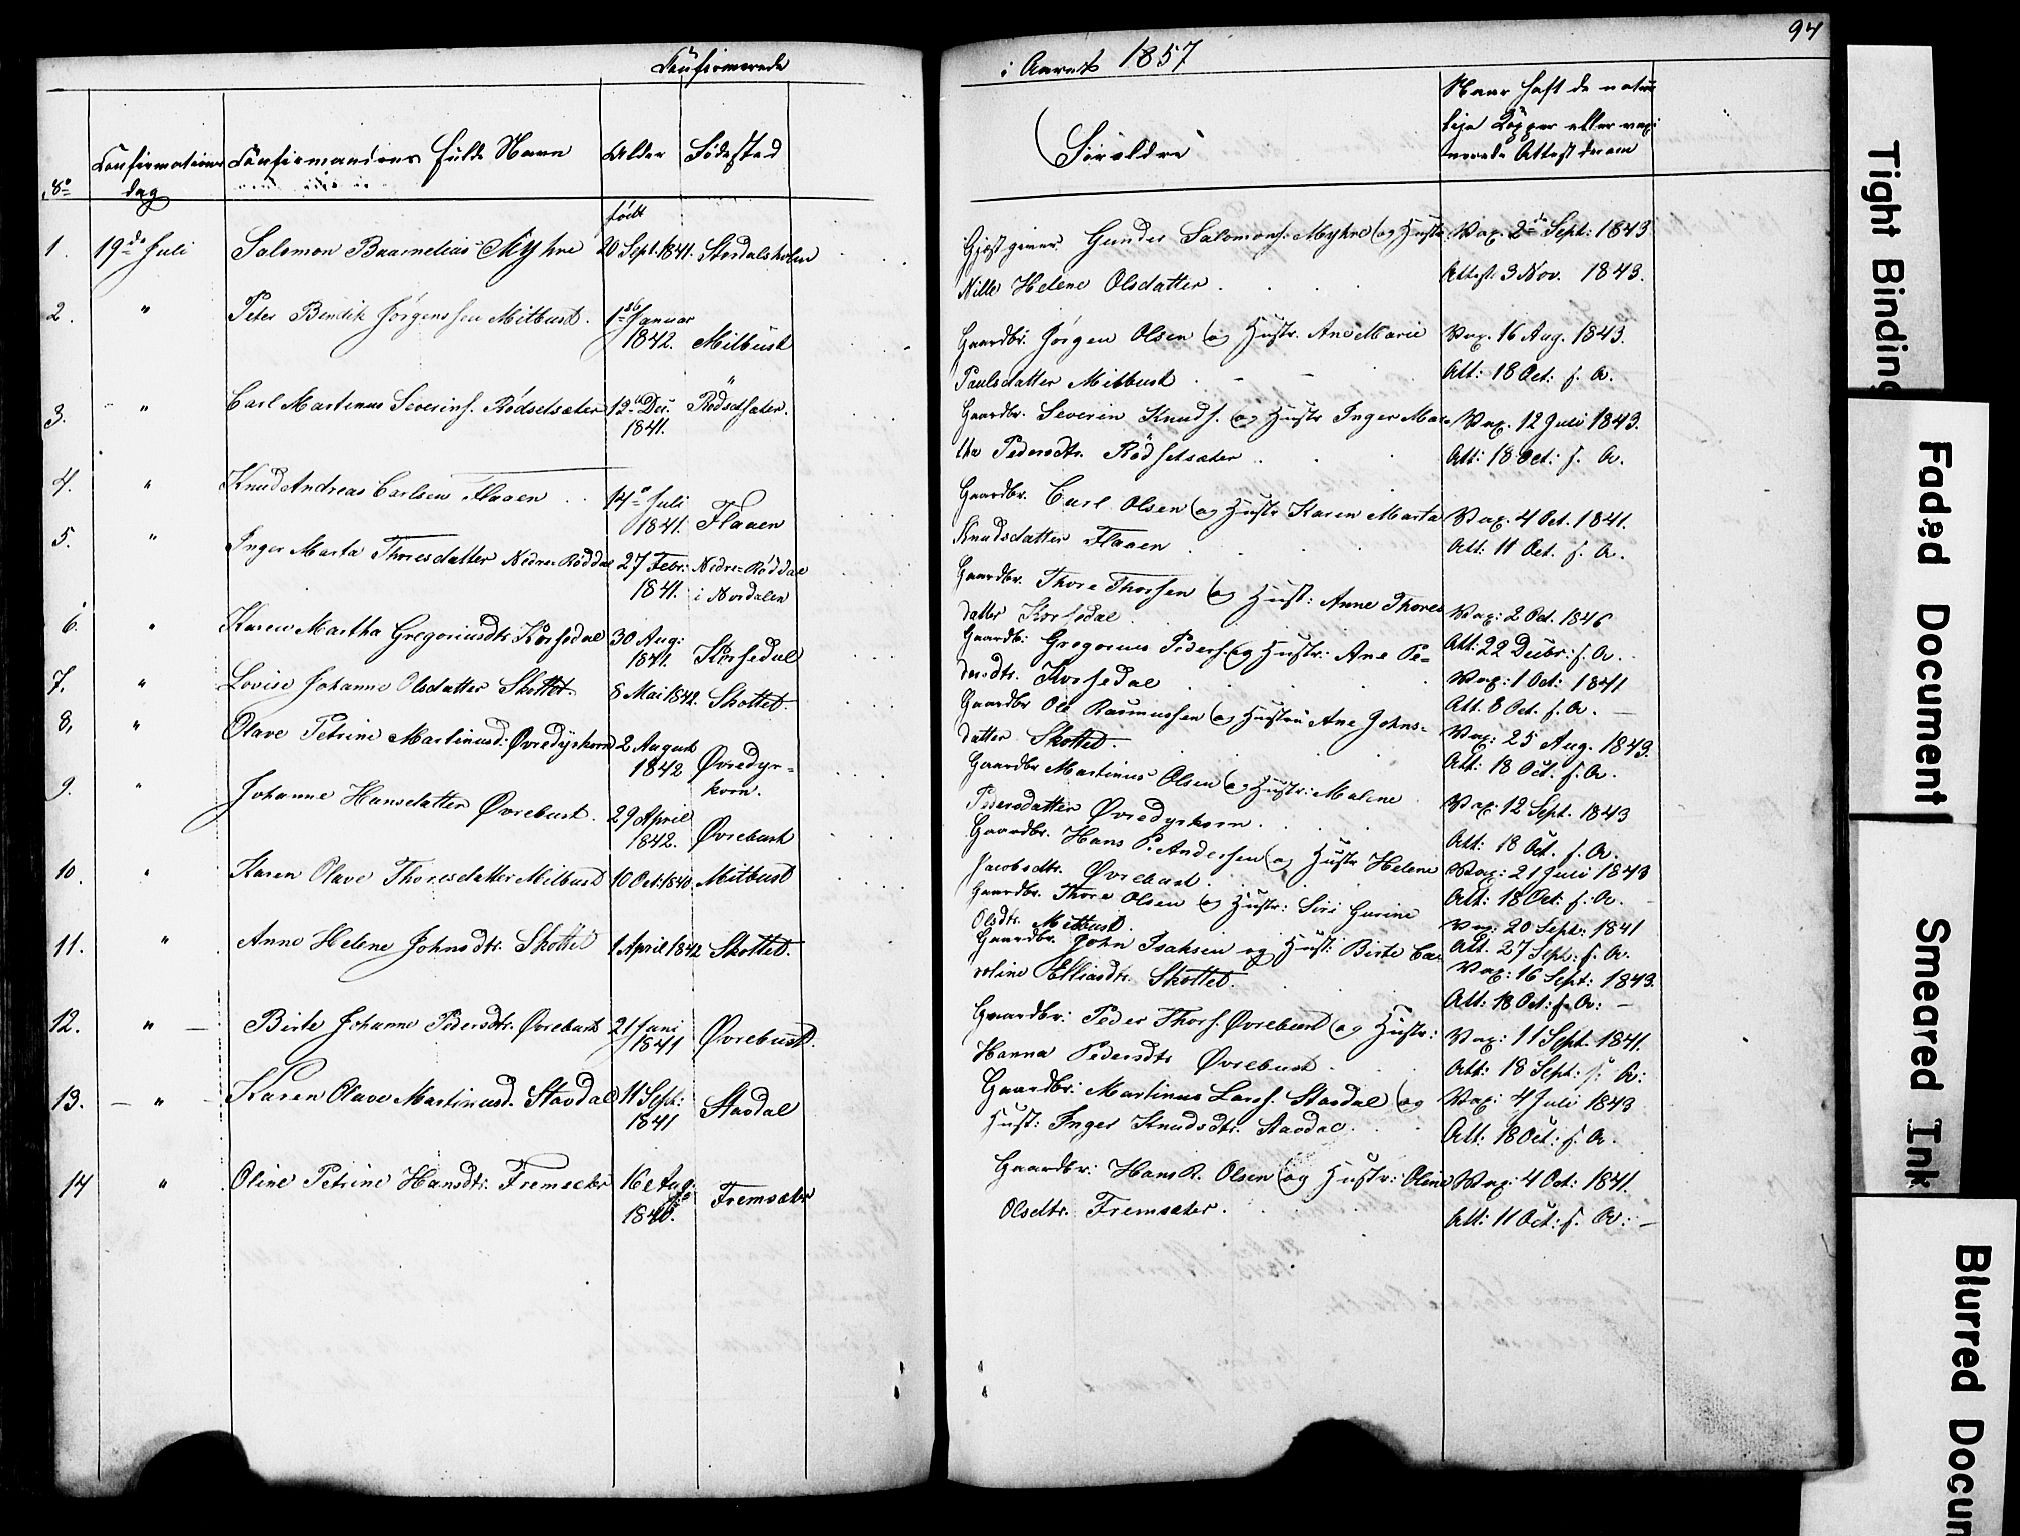 Confirmerede
i Aaret 1857
94
No
Confirmations
dag
Confirmandens fulde Navn
Alder
Fødested
Forældre
Naar haft de natur
lige Kopper eller vaxi
nerede Attest derom
født
1. 19de Juli Salomon Baarnelias Myhre 20 Sept. 1841. Stordalsholm
Gjæstgiver Gunder Salomons. Myhre og Hustr.
Nille Helene Olsdatter
Vax. 2de Sept: 1843
Attest: 3 Nov. 1843.
2. " Peter Bendik Jørgensen Mitbust. 1ste Januar
1842. Mitbust
Gaardbr. Jørgen Olsen og Hustr. Ane Marie
Paulsdatter Mitbust
Vax. 16 Aug. 1843.
Att: 18 Oct: s. A.
3. " Carl Martinus Severins. Rødsetsæter 12te Dec.
1841. Rødsetsæter.
Gaardbr. Severin Knuds. og Hustr Inger Mar-
the Pedersdtr. Rødsetsæter
Vax. 12 Juli 1843.
Att: 18 Oct: s. A.
4. " Knud Andreas Carlsen Flaaen 14de Juli
1841. Flaaen
Gaardbr. Carl Olsen og Hustr Karen Marta
Knudsdatter Flaaen
Vax. 4 Oct. 1841.
Att: 11 Oct. s. A.
5. " Inger Marta Thoresdatter Nedre-Røddal 27 Febr: Nedre-Røddal
1841. i Nordalen
Gaardbr. Thore Thorsen og Hust: Anne Thores
datter Korsedal
Vax: 2 Oct. 1846
Att: 22 Decbr: s. A.
6. " Karen Martha Gregoriusdtr Korsedal 30 Aug:
1841. Korsedal
Gaardb: Gregorius Peders. og Hustr: Ane Pe-
dersdtr. Korsedal
Vax: 1 Oct: 1841
Att. 8 Oct. s. A.
7. " Lovise Johanne Olsdatter Skottet 8 Mai 1842. Skottet.
Gaardbr Ole Rasmussen og Hustru Ane Johns-
datter Skottet.
Vax: 25 Aug. 1843.
Att: 18 Oct. s. A.
8. " Olave Petrine Martinusd. Øvredyrkorn 2 August
1842 Øvredyr-
korn.
Gaardbr Martinus Olsen og Hustr: Malene
Pedersdatter Øvredyrkorn.
Vax: 12 Sept. 1843
Att: 18 Oct. s. A.
9. " Johanne Hansdatter Øvrebust. 29 April
1842. Øvrebust
Gaardbr. Hans P. Andersen og Hustr Helene
Jacobsdtr. Øvrebust.
Vax: 21 Juli 1843
Att: 18 Oct: s. A.
10. " Karen Olave Thoresdatter Mitbust 10 Oct: 1840. Mitbust
Gaardbr. Thore Olsen og Hustr: Siri Gurine
Olsdtr. Mitbust.
Vax: 20 Sept: 1841
Att. 27 Sept: s. A.
11. " Anne Helene Johnsdtr. Skottet 1 April 1842 Skottet.
Gaardbr. John Isaksen og Hust: Birte Ca-
roline Elliasdtr. Skottet.
Vax: 16 Sept: 1843.
Att: 18 Oct: s. A:
12. " Birte Johanne Pedersdtr. Øvrebust 21 Juni
1841 Øvrebust.
Gaardbr: Peder Thors. Øvrebust og Hustr:
Hanna Pedersdtr Øvrebust
Vax: 11 Sept. 1841.
Att: 18 Sept: s. A:
13. " Karen Olave Martinusd. Stavdal 11 Sept:
1841 Stavdal
Gaardbr: Martinus Lars. Stavdal og
Hust: Inger Knudsdtr. Stavdal.
Vax: 4 Juli 1843
Att: 18 Oct: s. A.
14 " Oline Petrine Hansdtr. Fremsæter 16 Aug.
1840. Fremsæter
Gaardbr: Hans R. Olsen og Hustr: Oline
Olsdtr. Fremsæter.
Vax: 4 Oct: 1841.
Att: 11 Oct: s. A.
Tight Binding
Faded Document
Smeared Ink
Blurred Docum